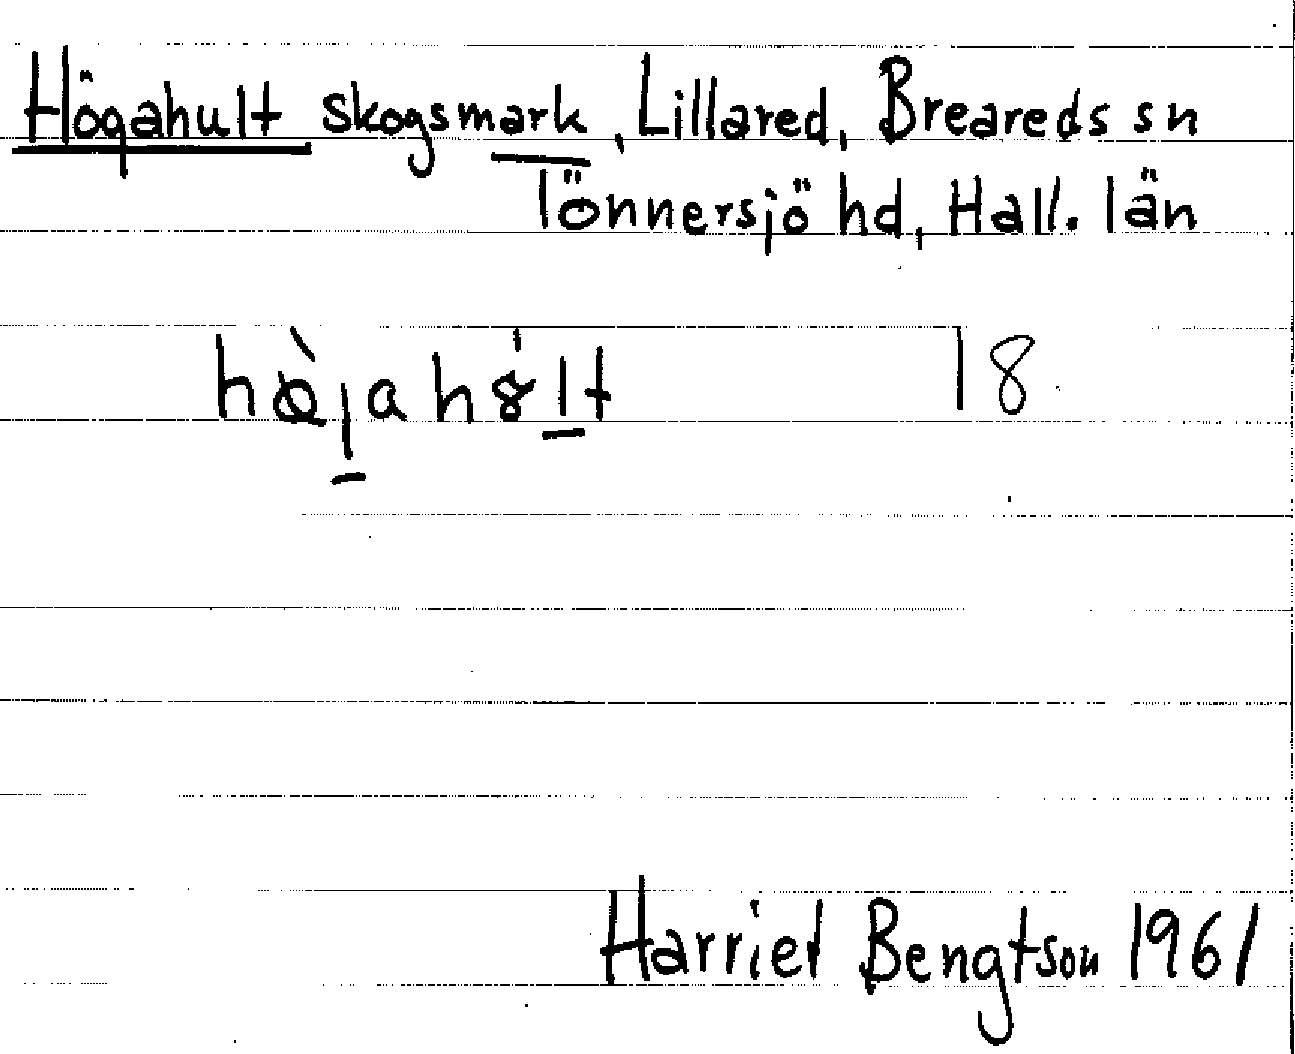 Högahult skogsmark, Lillared, Breareds sn
Tönnersjö hd, Hall. län
hø̀jahɵ́lt 18
Harriet Bengtson 1961